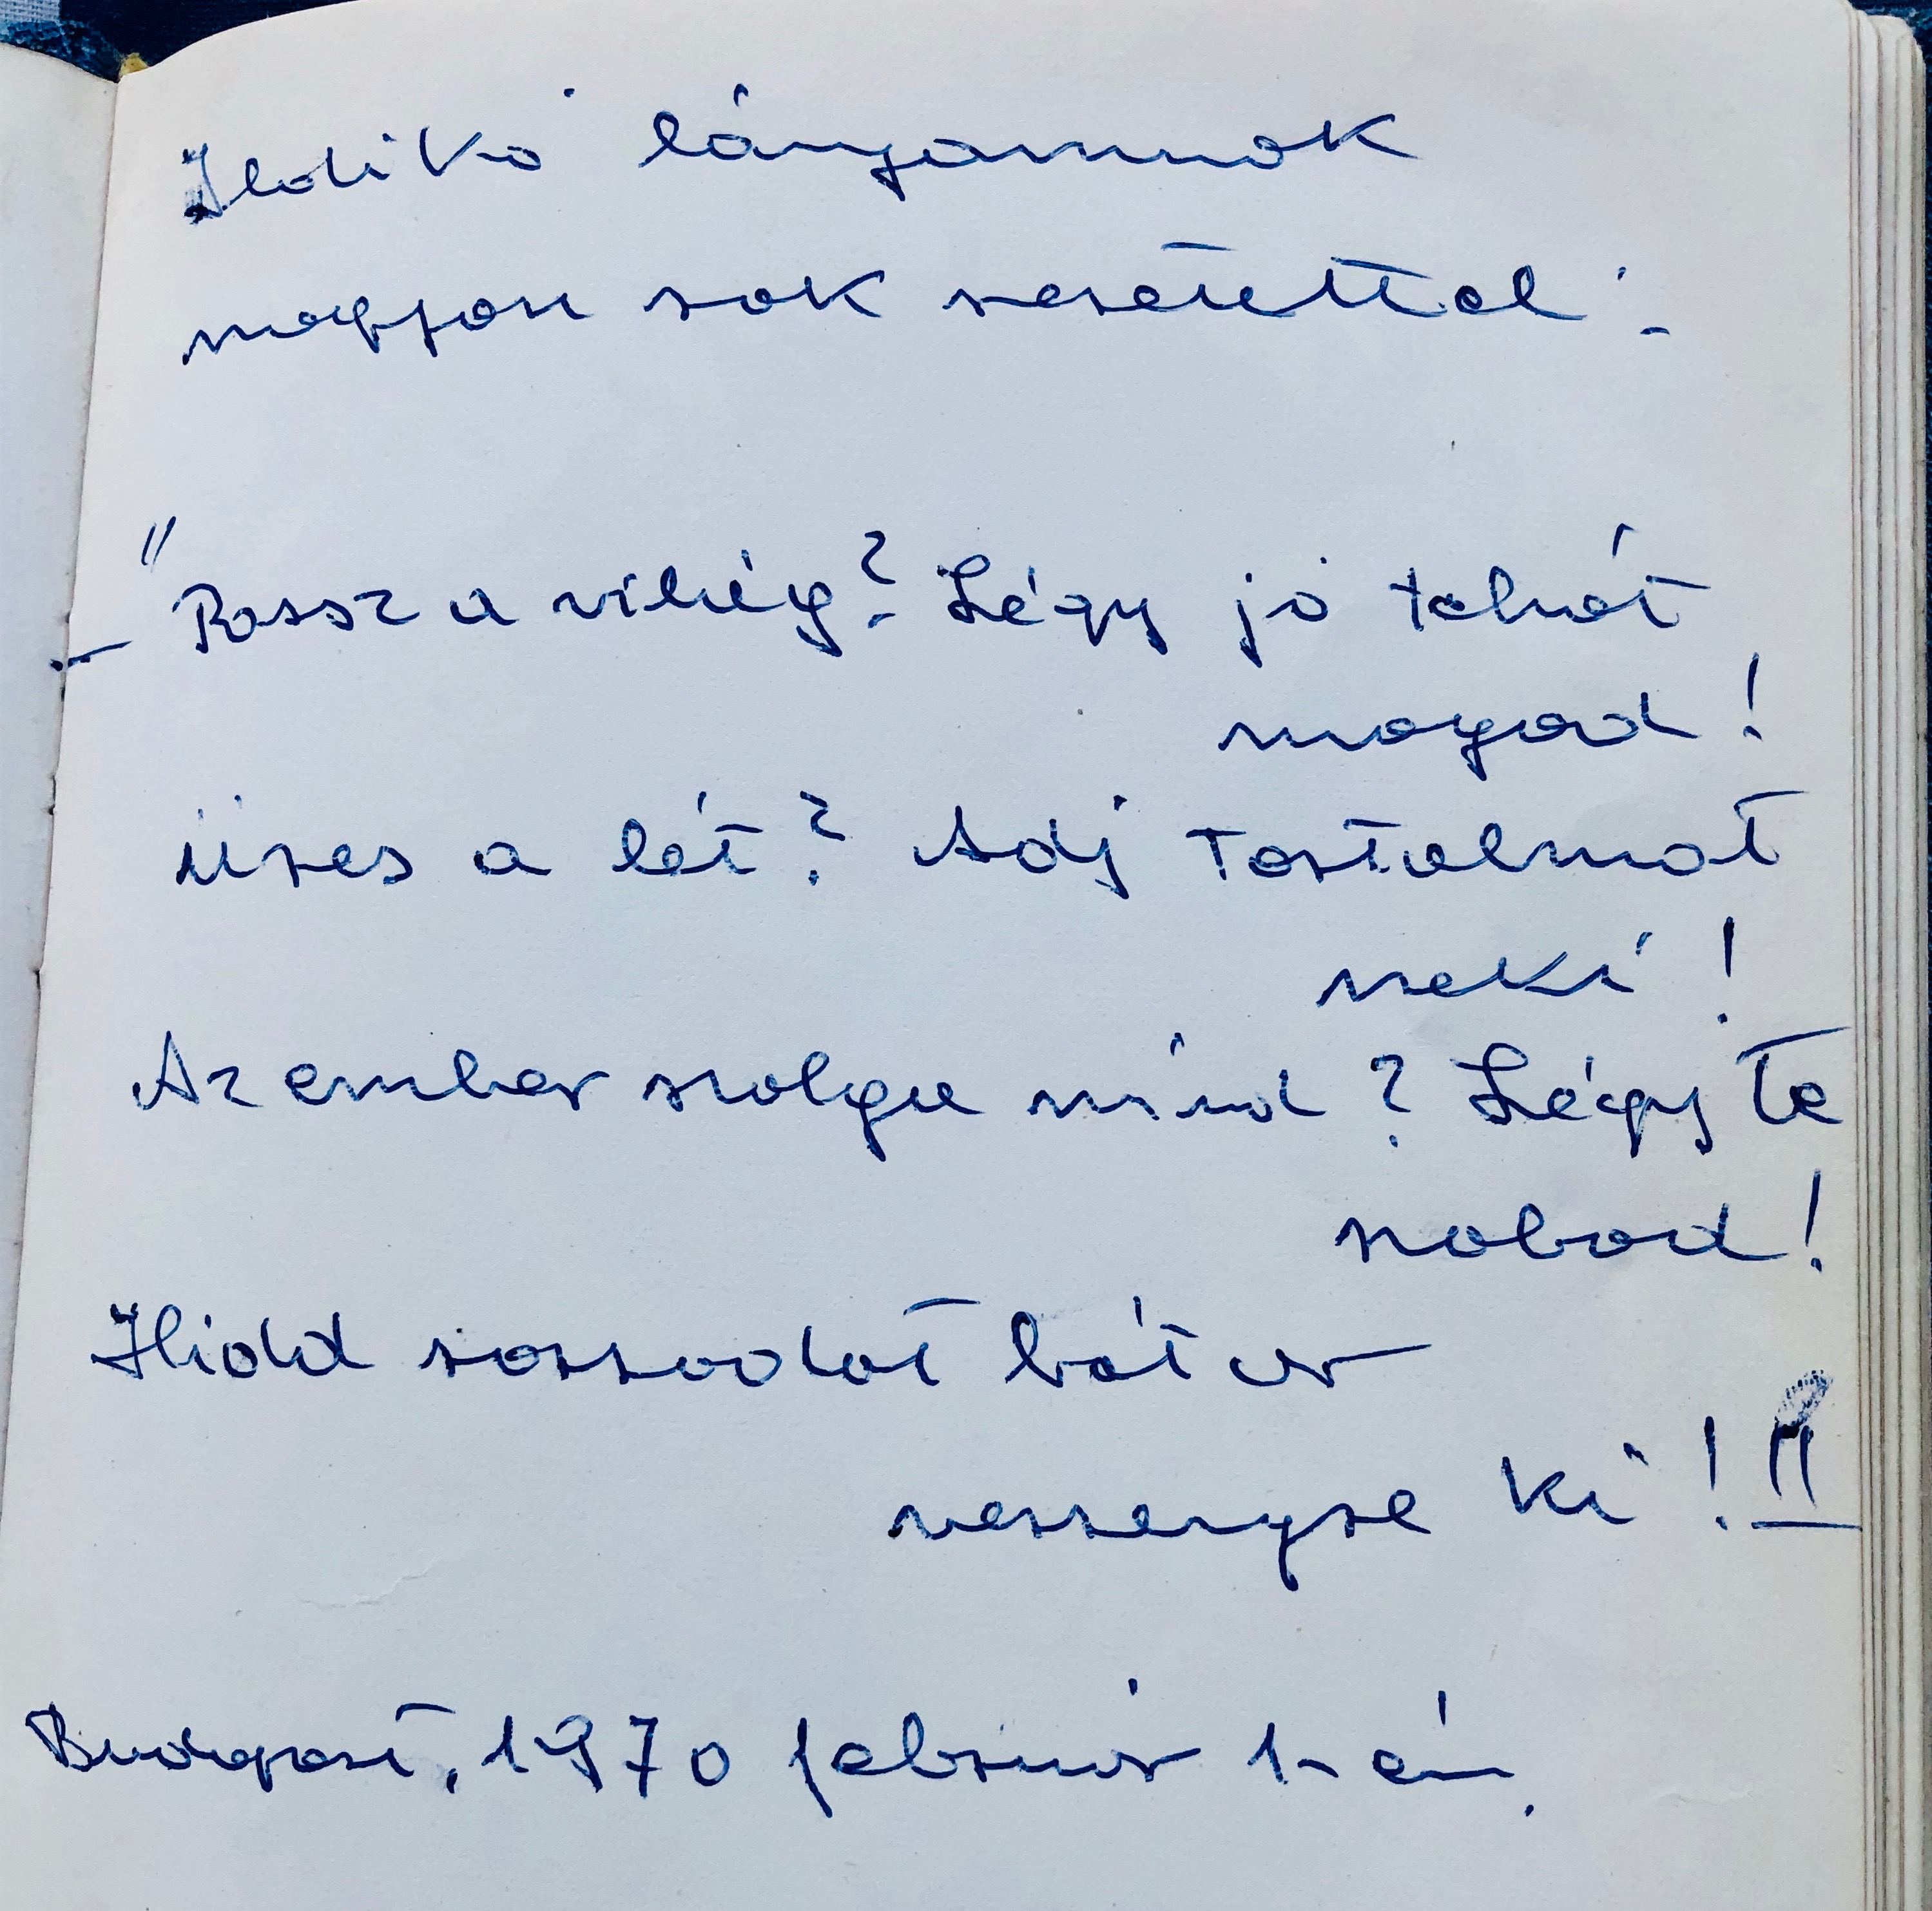 Ildikó lányomnak
nagyon sok szeretettel:
"Rossz a világ? Légy jó tehát
magad!
üres a lét? Adj Tartalmat
neki!
Az ember szolga mind? Légy Te
szabad!
Hidd sorsodat bátor
versenyre ki!"
Budapest, 1970 február 1-én.